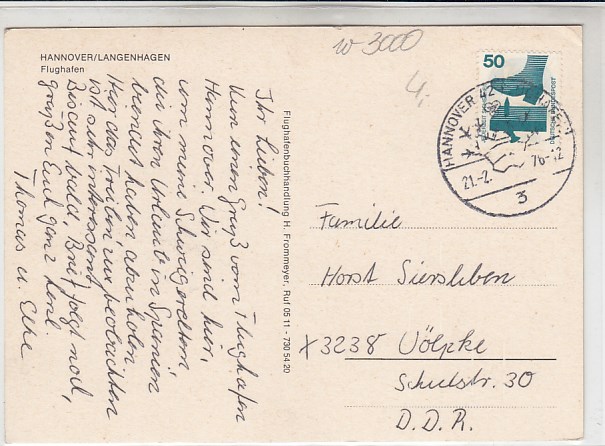 HANNOVER/LANGENHAGEN
Flughafen
w-3000
4,-
50
DEUTSCHE BUNDESPOST
HANNOVER 42
21.-2. 76-12
3
Flughafenbuchhandlung H. Frommeyer, Ruf 05 11 - 730 54 20
Ihr Lieben!
Nun einen Gruß vom Flughafen
Hannover. Wir sind hier,
um meine Schwiegereltern
die ihren Urlaub in Spanien
verbracht haben abzuholen
Hier das Treiben zu beobachten
ist sehr interessant.
Bis auf bald, Brief folgt noch,
grüßen Euch ganz herzl.
Thomas u. Elke
Familie
Horst Siersleben
x 3238 Völpke
Schulstr. 30
D.D.R.